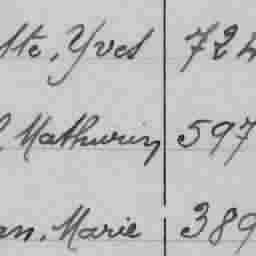 tte, Yves 724
Mathurin 597
an, Marie 389